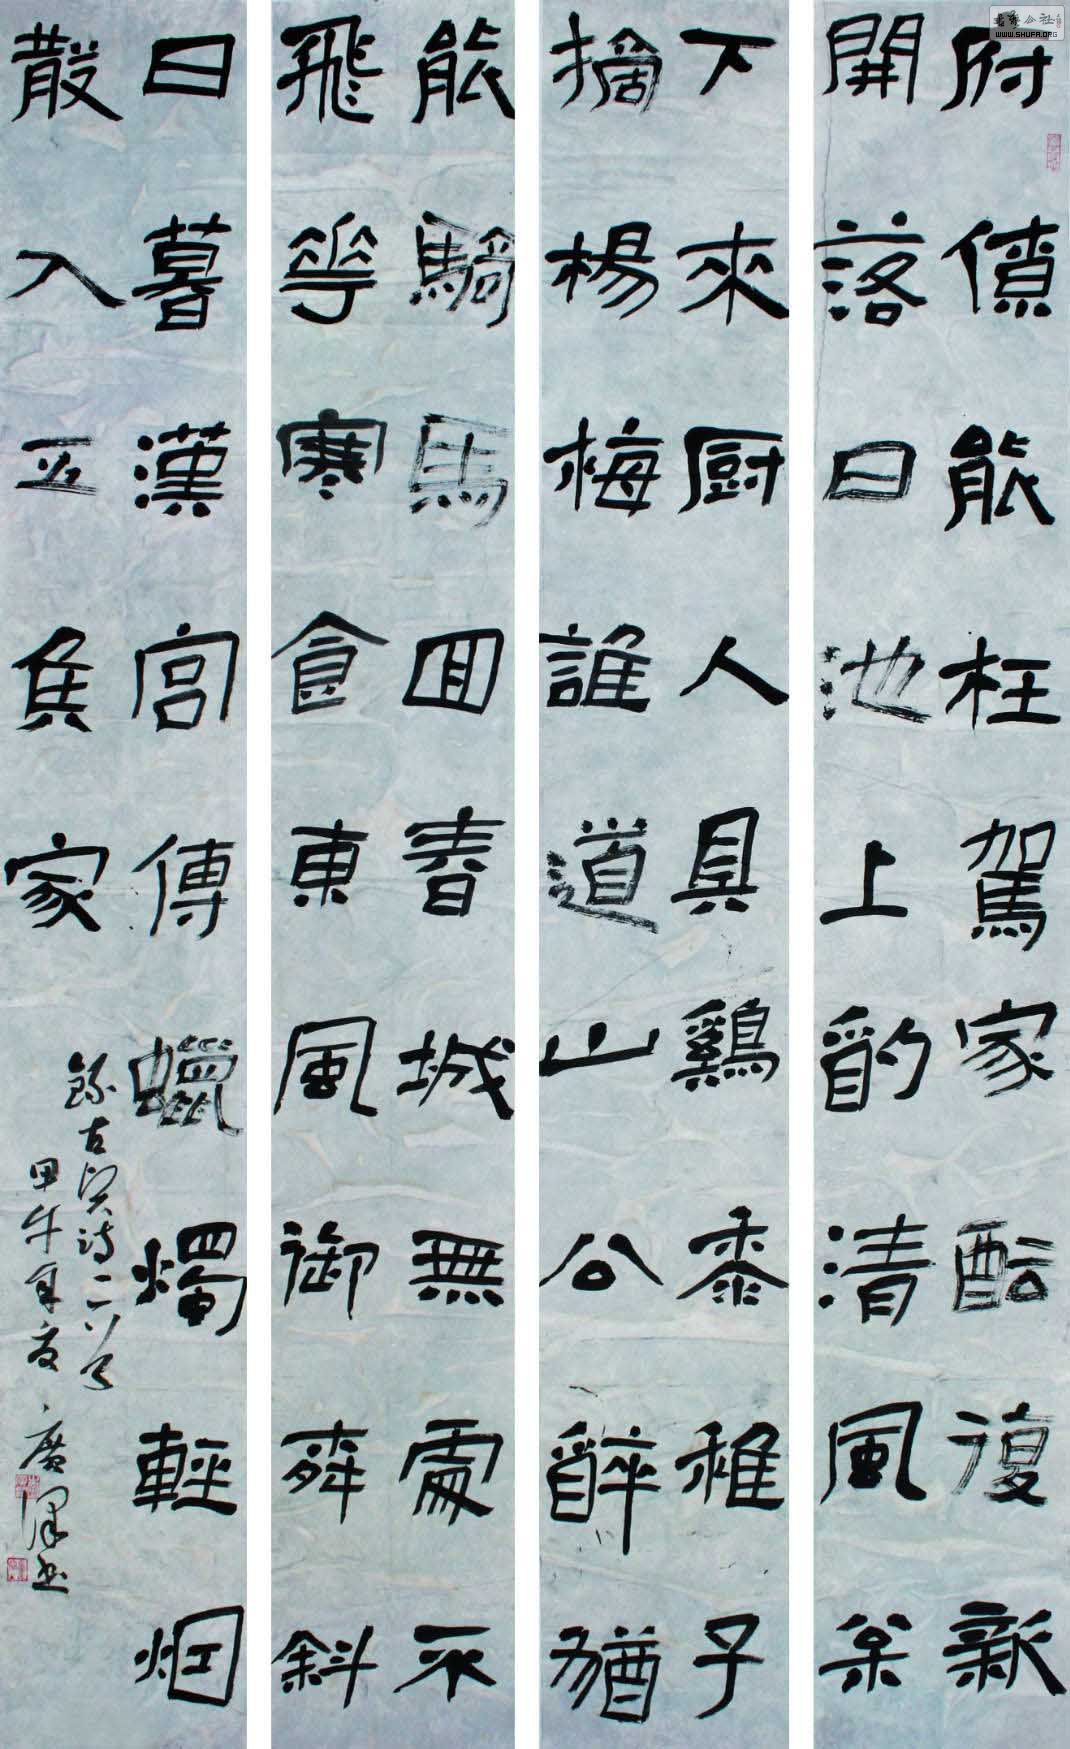 府僚能枉駕家酝復新
開落日池上酌清風枀
下來厨人具鷄黍稚子
摘楊梅誰道山公醉猶
能騎馬囬春城無處不
飛花寒食東風御柳斜
日暮漢宫傳蠟燭輕烟
散入五矦家
錄古賢詩二首
甲午年夏 廣澤书
书法公社
WWW.SHUFA.ORG